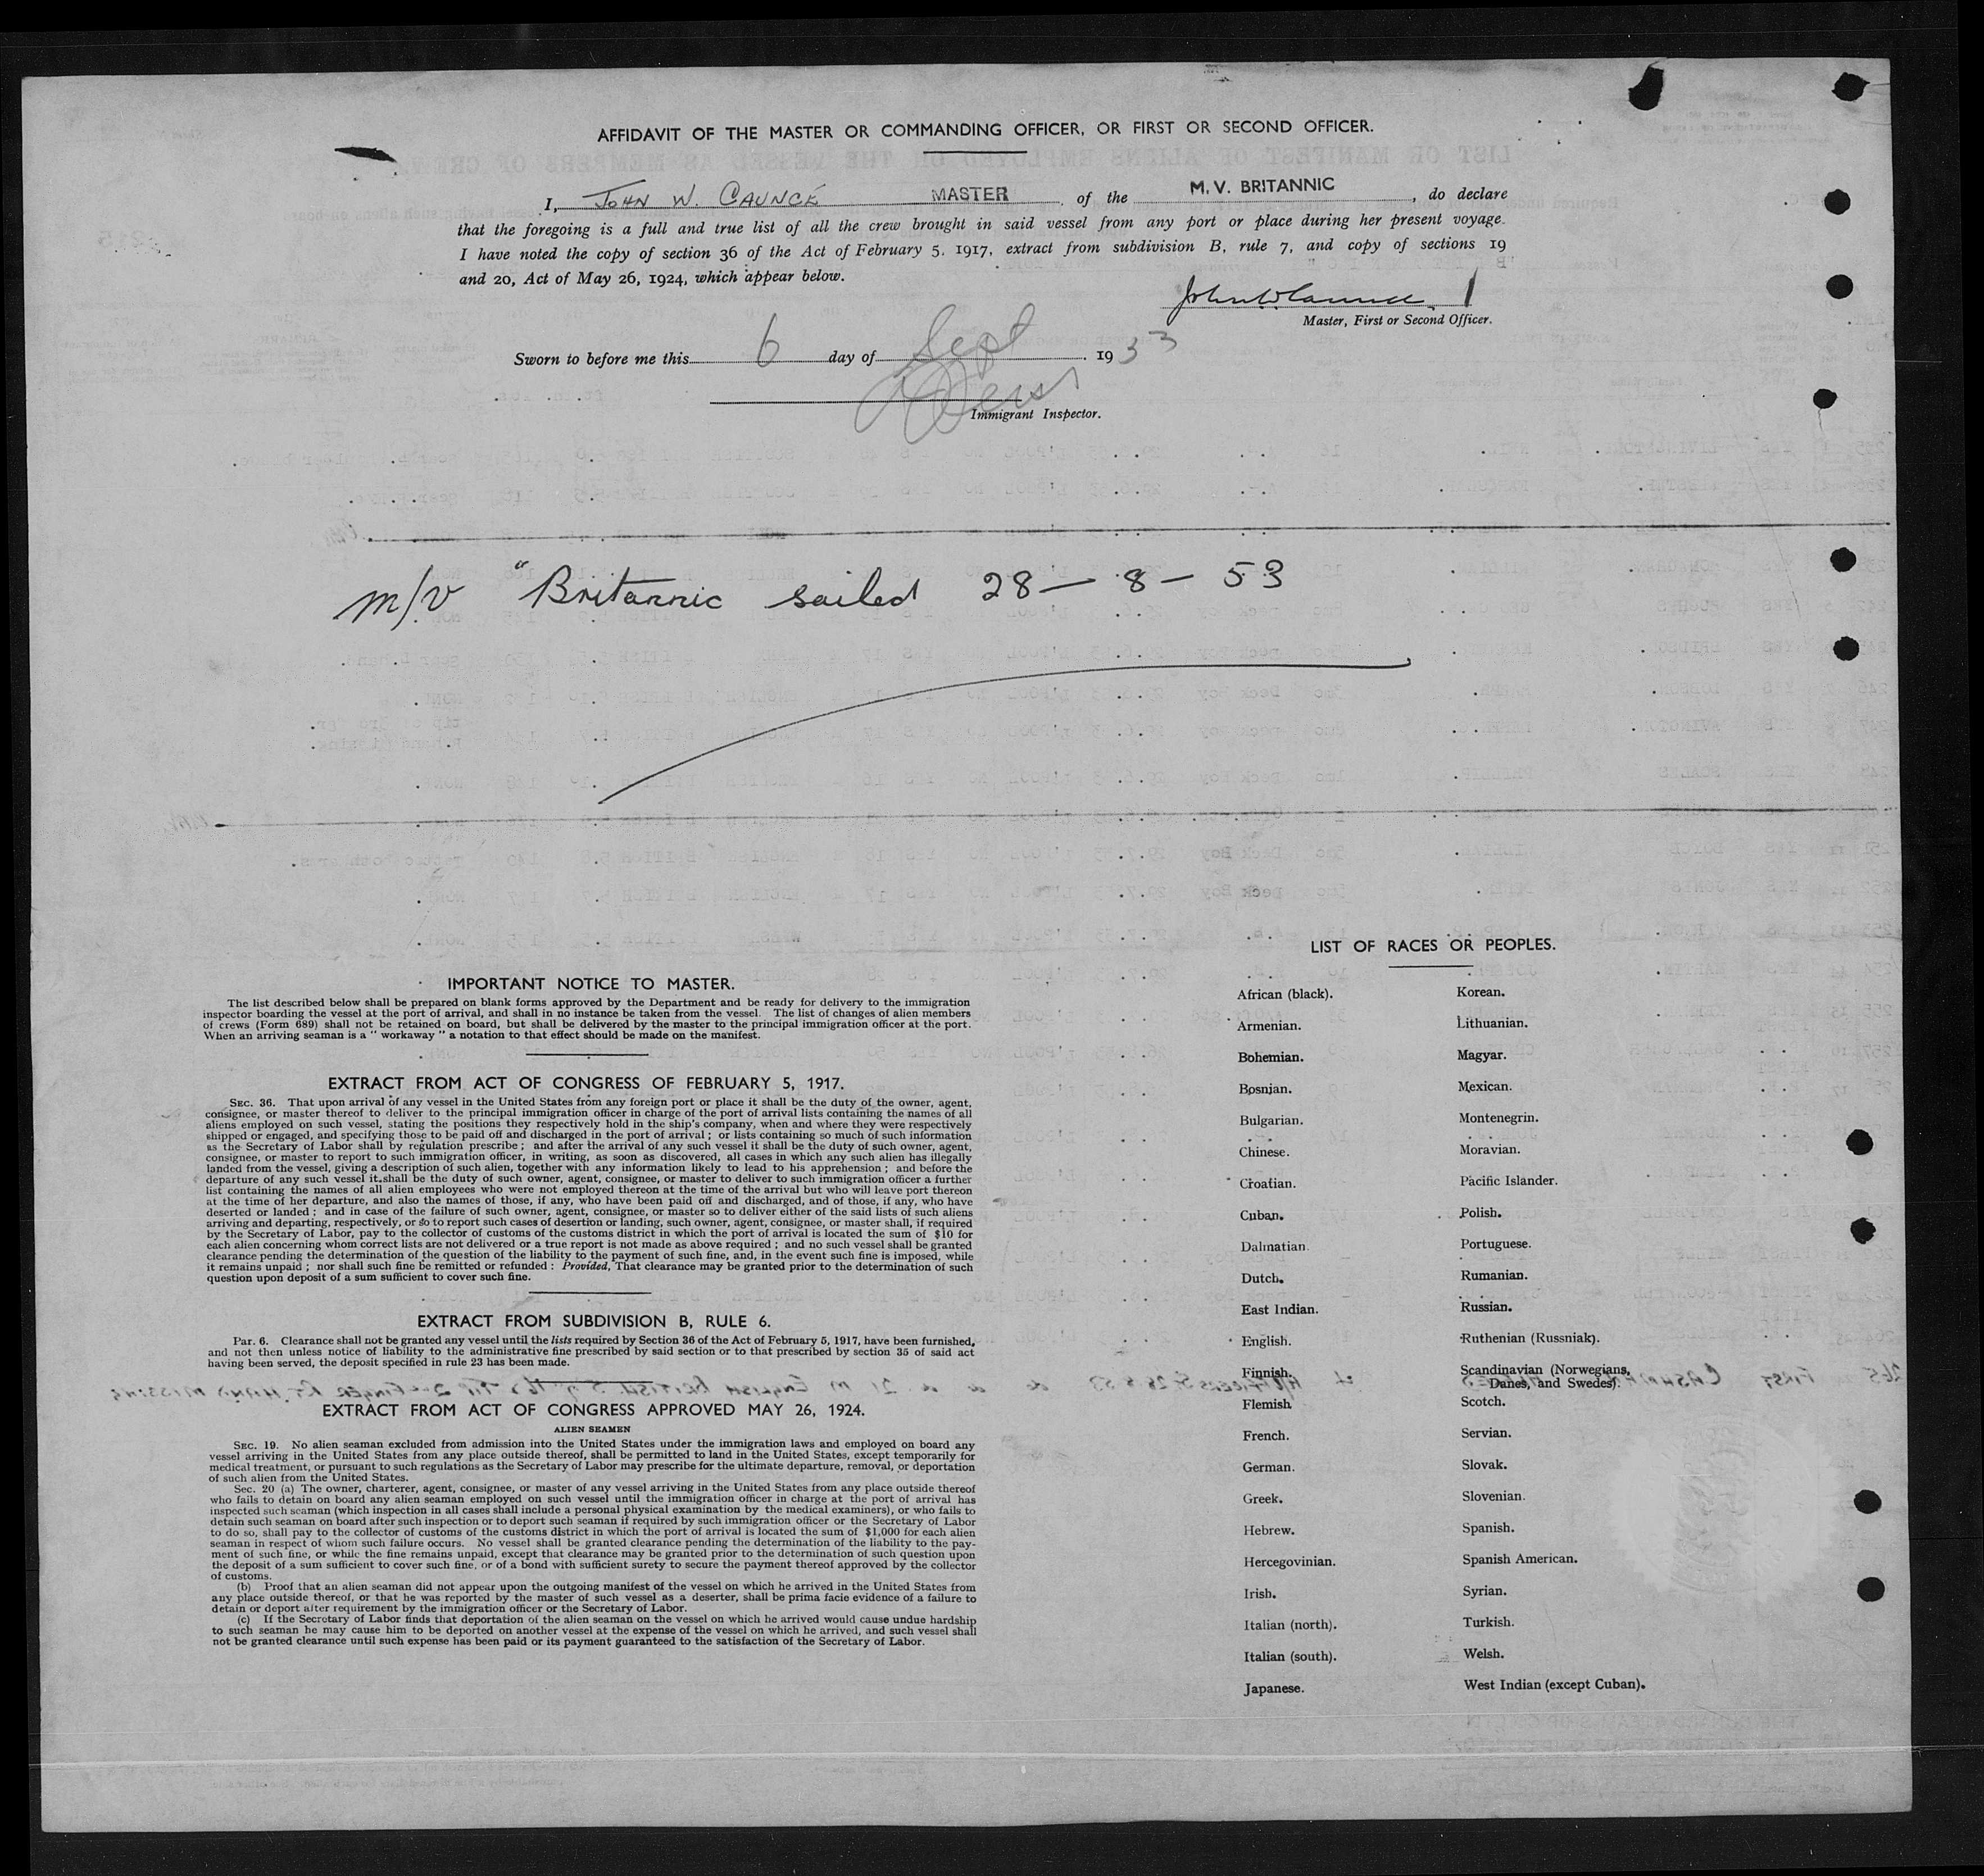 AFFIDAVIT OF THE MASTER OR COMMANDING OFFICER, OR FIRST OR SECOND OFFICER.
I, JOHN W. CAUNCE MASTER of the M.V. BRITANNIC, do declare
that the foregoing is a full and true list of all the crew brought in said vessel from any port or place during her present voyage.
I have noted the copy of section 36 of the Act of February 5, 1917, extract from subdivision B, rule 7, and copy of sections 19
and 20, Act of May 26, 1924, which appear below.
John W Caunce
Master, First or Second Officer.
Sworn to before me this 6 day of Sept 19 53
Immigrant Inspector.
m/v "Britannic sailed 28 — 8 — 53
IMPORTANT NOTICE TO MASTER.
The list described below shall be prepared on blank forms approved by the Department and be ready for delivery to the immigration
inspector boarding the vessel at the port of arrival, and shall in no instance be taken from the vessel. The list of changes of alien members
of crews (Form 689) shall not be retained on board, but shall be delivered by the master to the principal immigration officer at the port.
When an arriving seaman is a "workaway" a notation to that effect should be made on the manifest.
EXTRACT FROM ACT OF CONGRESS OF FEBRUARY 5, 1917.
SEC. 36. That upon arrival of any vessel in the United States from any foreign port or place it shall be the duty of the owner, agent,
consignee, or master thereof to deliver to the principal immigration officer in charge of the port of arrival lists containing the names of all
aliens employed on such vessel, stating the positions they respectively hold in the ship's company, when and where they were respectively
shipped or engaged, and specifying those to be paid off and discharged in the port of arrival; or lists containing so much of such information
as the Secretary of Labor shall by regulation prescribe; and after the arrival of any such vessel it shall be the duty of such owner, agent,
consignee, or master to report to such immigration officer, in writing, as soon as discovered, all cases in which any such alien has illegally
landed from the vessel, giving a description of such alien, together with any information likely to lead to his apprehension; and before the
departure of any such vessel it shall be the duty of such owner, agent, consignee, or master to deliver to such immigration officer a further
list containing the names of all alien employees who were not employed thereon at the time of the arrival but who will leave port thereon
at the time of her departure, and also the names of those, if any, who have been paid off and discharged, and of those, if any, who have
deserted or landed; and in case of the failure of such owner, agent, consignee, or master so to deliver either of the said lists of such aliens
arriving and departing, respectively, or so to report such cases of desertion or landing, such owner, agent, consignee, or master shall, if required
by the Secretary of Labor, pay to the collector of customs of the customs district in which the port of arrival is located the sum of $10 for
each alien concerning whom correct lists are not delivered or a true report is not made as above required; and no such vessel shall be granted
clearance pending the determination of the question of the liability to the payment of such fine, and, in the event such fine is imposed, while
it remains unpaid; nor shall such fine be remitted or refunded: Provided, That clearance may be granted prior to the determination of such
question upon deposit of a sum sufficient to cover such fine.
EXTRACT FROM SUBDIVISION B, RULE 6.
Par. 6. Clearance shall not be granted any vessel until the lists required by Section 36 of the Act of February 5, 1917, have been furnished,
and not then unless notice of liability to the administrative fine prescribed by said section or to that prescribed by section 35 of said act
having been served, the deposit specified in rule 23 has been made.
EXTRACT FROM ACT OF CONGRESS APPROVED MAY 26, 1924.
ALIEN SEAMEN
SEC. 19. No alien seaman excluded from admission into the United States under the immigration laws and employed on board any
vessel arriving in the United States from any place outside thereof, shall be permitted to land in the United States, except temporarily for
medical treatment, or pursuant to such regulations as the Secretary of Labor may prescribe for the ultimate departure, removal, or deportation
of such alien from the United States.
Sec. 20 (a) The owner, charterer, agent, consignee, or master of any vessel arriving in the United States from any place outside thereof
who fails to detain on board any alien seaman employed on such vessel until the immigration officer in charge at the port of arrival has
inspected such seaman (which inspection in all cases shall include a personal physical examination by the medical examiners), or who fails to
detain such seaman on board after such inspection or to deport such seaman if required by such immigration officer or the Secretary of Labor
to do so, shall pay to the collector of customs of the customs district in which the port of arrival is located the sum of $1,000 for each alien
seaman in respect of whom such failure occurs. No vessel shall be granted clearance pending the determination of the liability to the pay-
ment of such fine, or while the fine remains unpaid, except that clearance may be granted prior to the determination of such question upon
the deposit of a sum sufficient to cover such fine, or of a bond with sufficient surety to secure the payment thereof approved by the collector
of customs.
(b) Proof that an alien seaman did not appear upon the outgoing manifest of the vessel on which he arrived in the United States from
any place outside thereof, or that he was reported by the master of such vessel as a deserter, shall be prima facie evidence of a failure to
detain or deport after requirement by the immigration officer or the Secretary of Labor.
(c) If the Secretary of Labor finds that deportation of the alien seaman on the vessel on which he arrived would cause undue hardship
to such seaman he may cause him to be deported on another vessel at the expense of the vessel on which he arrived, and such vessel shall
not be granted clearance until such expense has been paid or its payment guaranteed to the satisfaction of the Secretary of Labor.
LIST OF RACES OR PEOPLES.
African (black).
Armenian.
Bohemian.
Bosnian.
Bulgarian.
Chinese.
Croatian.
Cuban.
Dalmatian.
Dutch.
East Indian.
English.
Finnish.
Flemish
French.
German.
Greek.
Hebrew.
Hercegovinian.
Irish.
Italian (north).
Italian (south).
Japanese.
Korean.
Lithuanian.
Magyar.
Mexican.
Montenegrin.
Moravian.
Pacific Islander.
Polish.
Portuguese.
Rumanian.
Russian.
Ruthenian (Russniak).
Scandinavian (Norwegians,
Danes, and Swedes).
Scotch.
Servian.
Slovak.
Slovenian.
Spanish.
Spanish American.
Syrian.
Turkish.
Welsh.
West Indian (except Cuban).